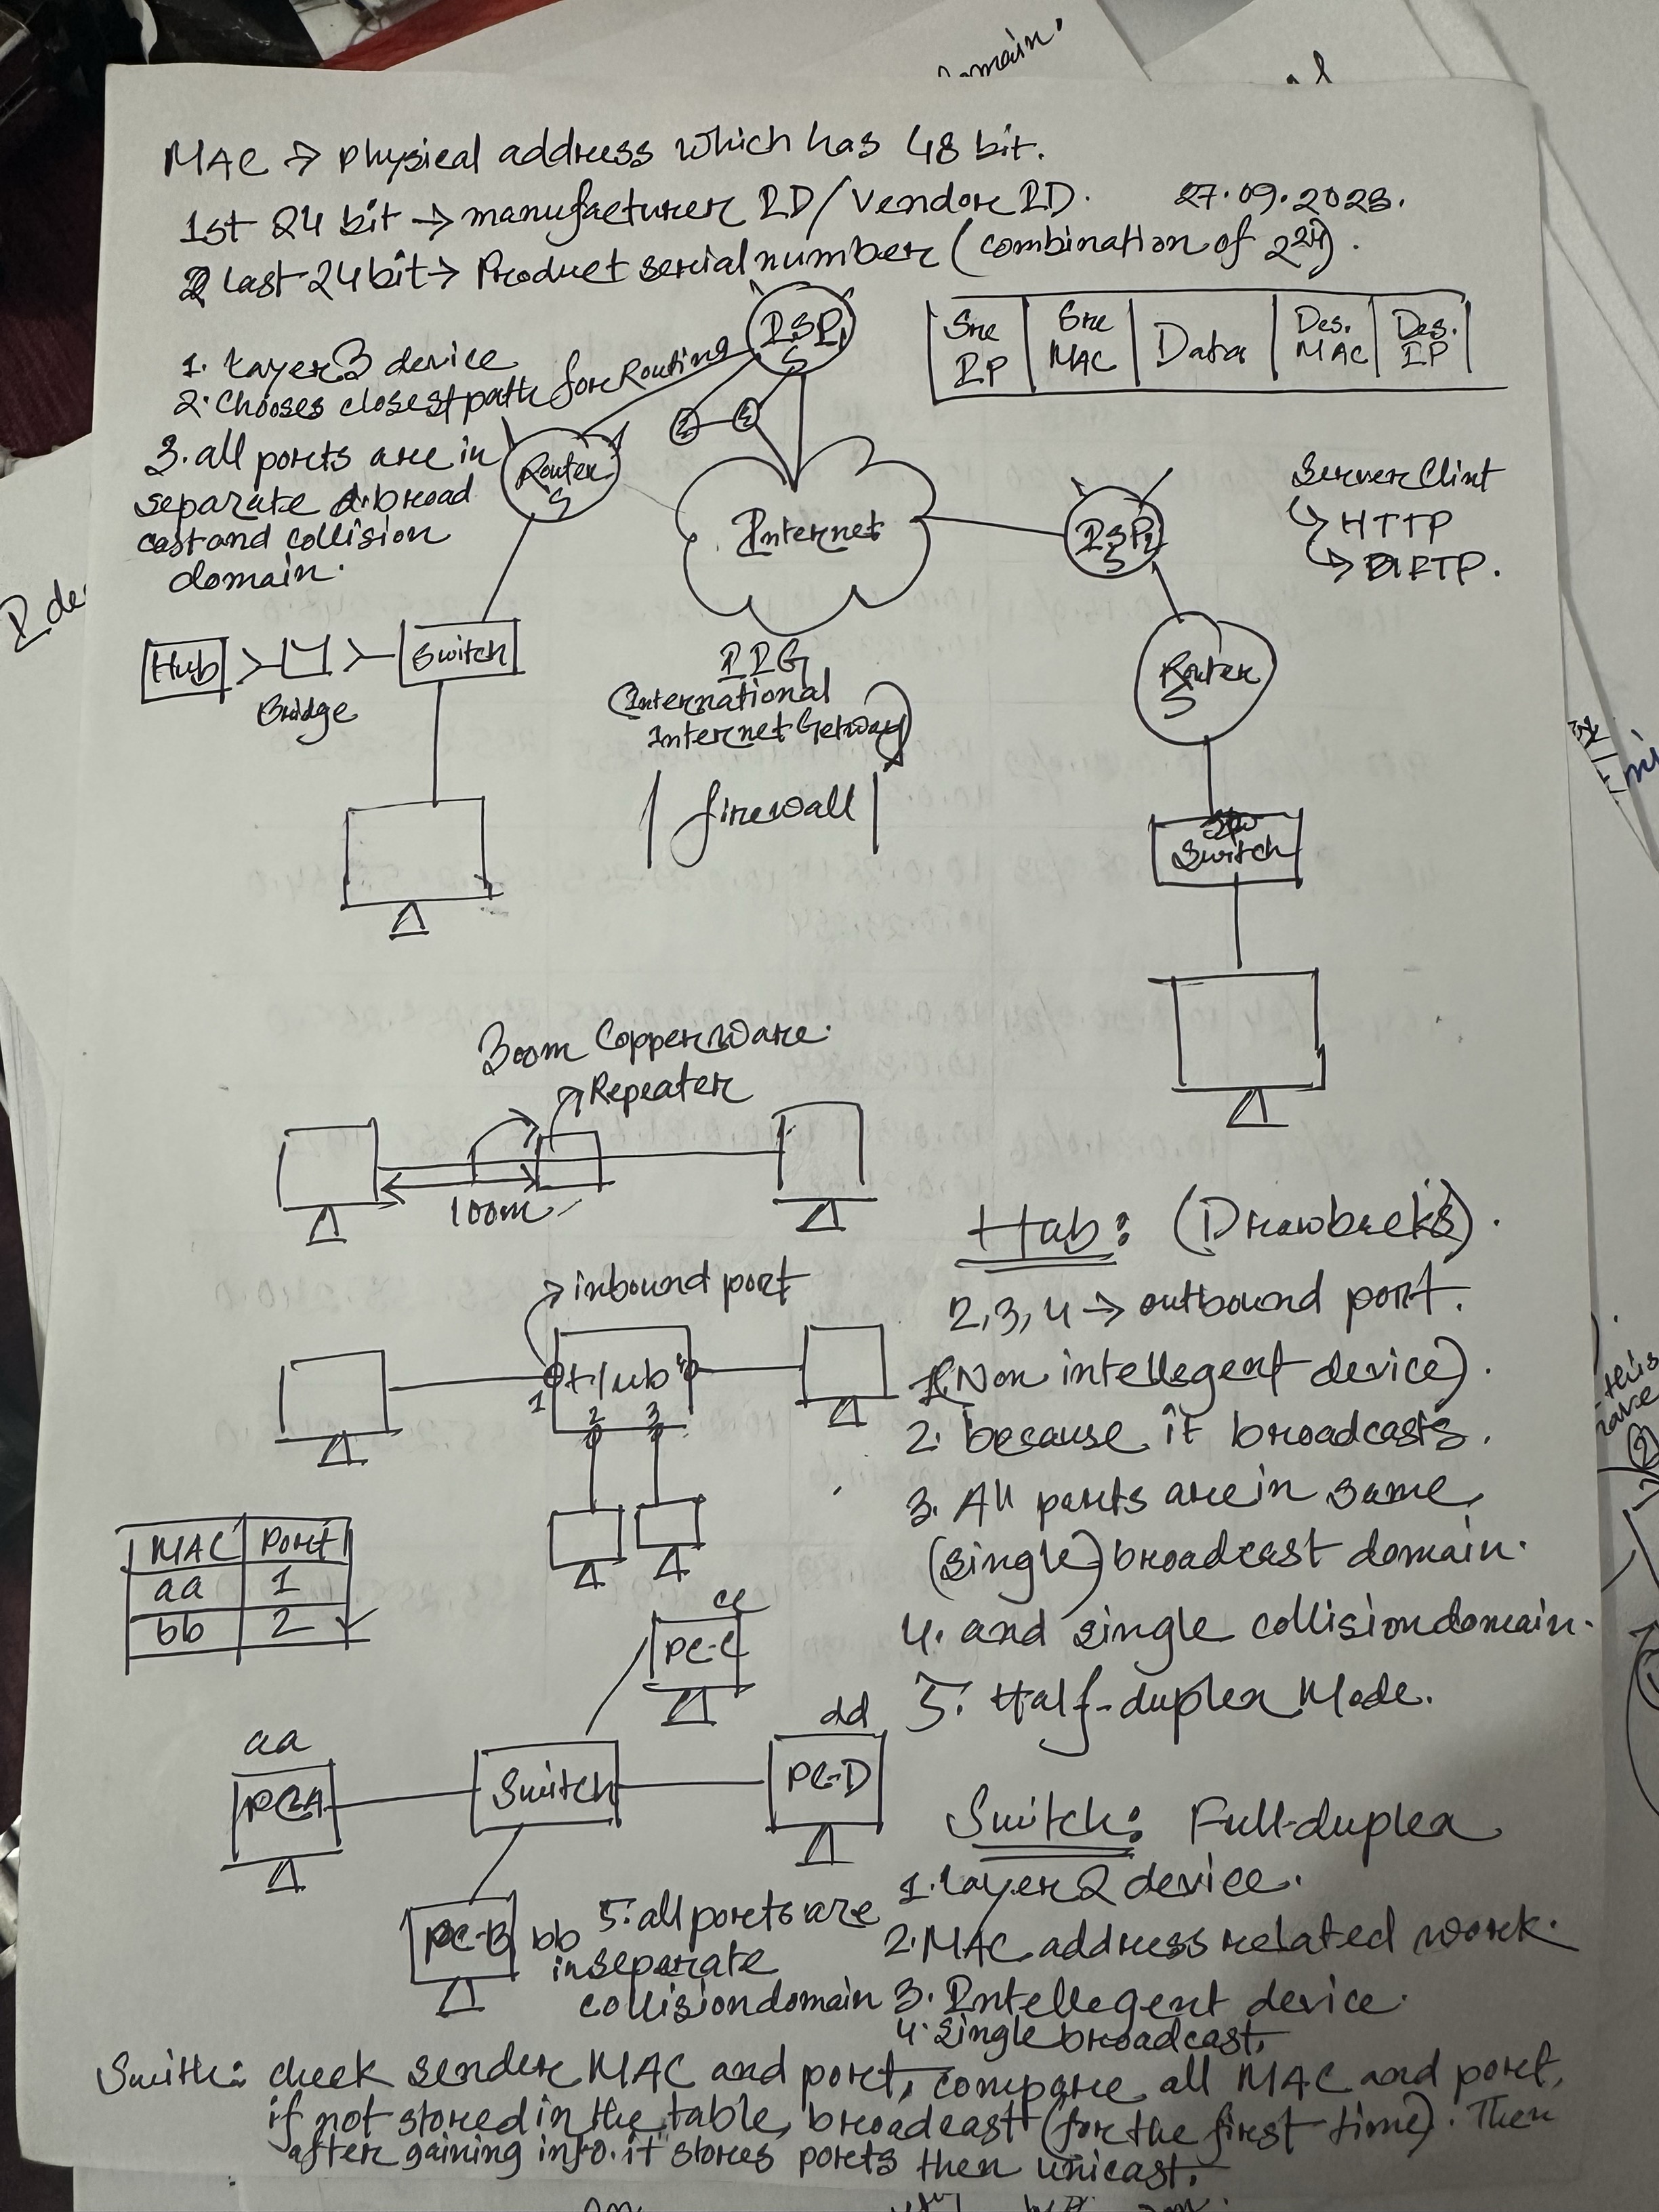 MAC → Physical address which has 48 bit.
1st 24 bit → manufacturer ID/Vendor ID. 27.09.2023.
last 24 bit → Product serial number (combination of 2^24).
ISP1
S
Src IP | Src MAC | Data | Des. MAC | Des. IP
1. Layer 3 device
2. Chooses closest path for Routing
3. all ports are in
separate broad
cast and collision
domain.
Router
S
Internet
ISP2
S
Server Clint
↳ HTTP
↳ FTP.
Hub
Bridge
Switch
IIG
(International
Internet Getway)
firewall
Router
S
Switch
300m Copper Ware.
Repeater
100m
Hub: (Drawbacks).
inbound port
2,3,4 → outbound port.
Hub
1
2
3
4
1. (Non intellegent device).
2. because it broadcasts.
3. All ports are in same
(single) broadcast domain.
4. and single collision domain.
5. Half-duplex Mode.
MAC | Port
aa | 1
bb | 2 ✓
cc
PC-C
aa
PC-A
Switch
dd
PC-D
PC-B bb
Switch: Full-duplex
1. Layer 2 device.
2. MAC address related work.
3. Intellegent device.
4. Single broadcast.
5. all ports are
in separate
collision domain
Swith: check sender MAC and port, compare all MAC and port,
if not stored in the table, broadcast (for the first time). Then
after gaining info. it stores ports then unicast.